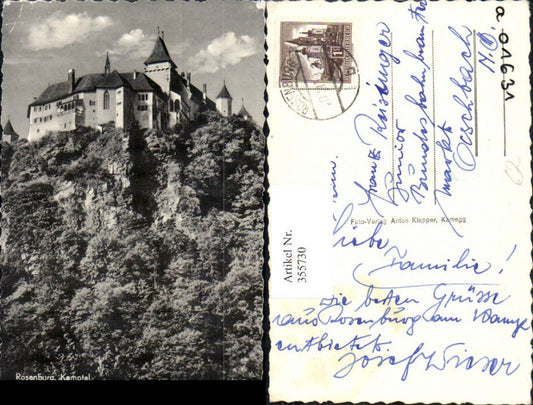 Rosenburg, Kamptal
a 01631
Franz Reisinger
Junior
Bundesbahnbeamter
Markt Aeschbach
N.Ö.
Foto-Verlag Anton Klapper, Kamegg
Artikel Nr.
355730
Liebe
Familie!
Die besten Grüsse
aus Rosenburg am Kampe
entbietet
Josef Wieser